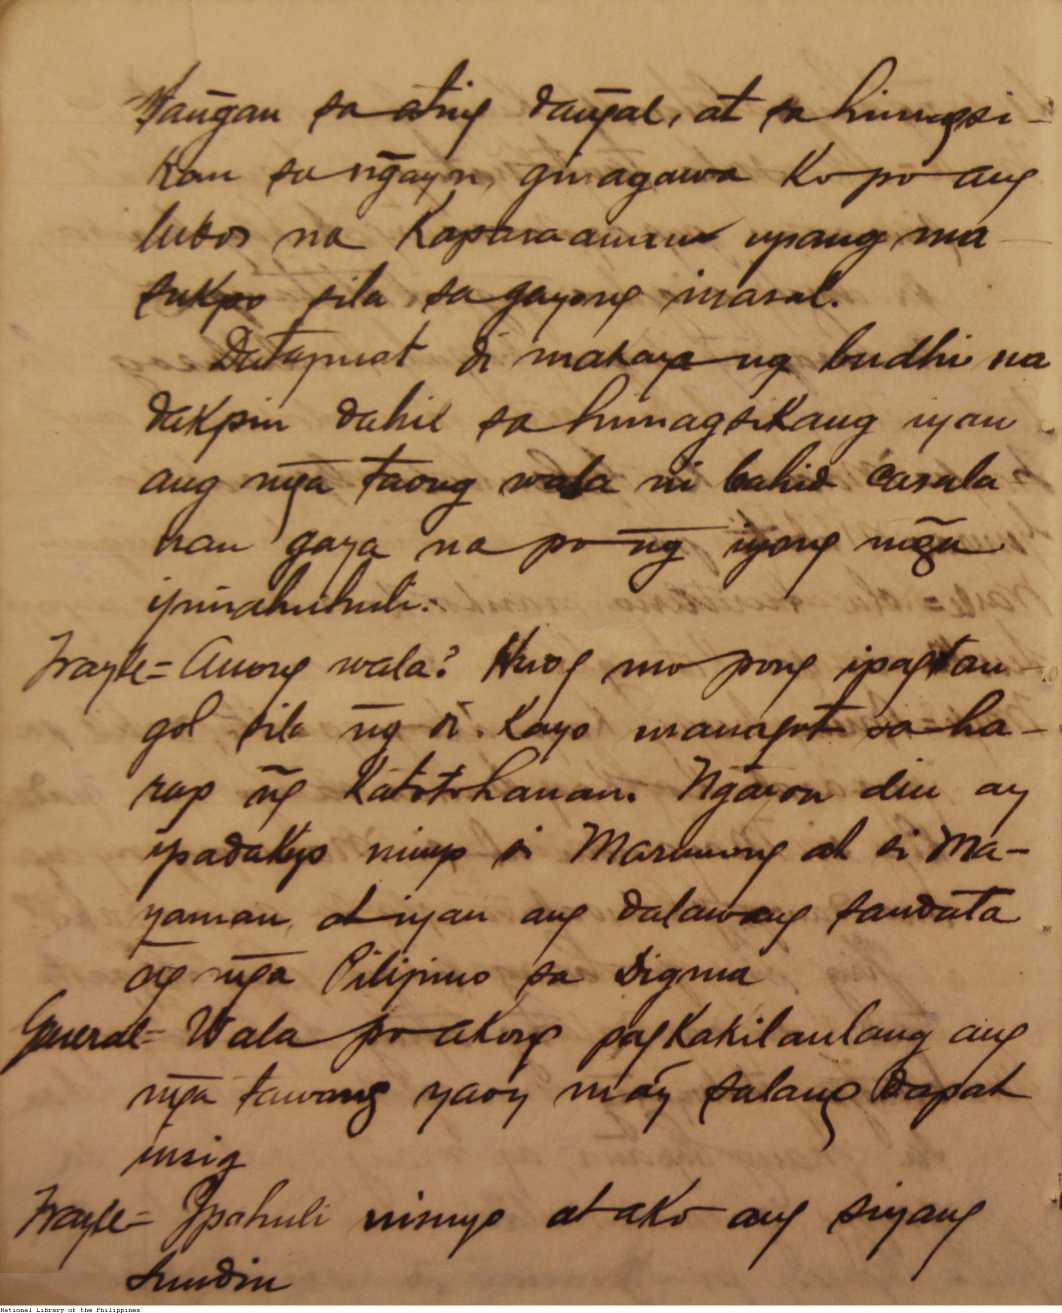 tañgan sa ating dañgal, at sa himagsi-
kan sa ñgayon, ginagawa ko po ang
lubos na kaparaanan upang ma
sukpo sila sa gayong inasal.
Datapuat di makaya ng budhi na
dakpin dahil sa himagsikang iyan
ang mga taong wala ni bahid casala
nan gaya na po ng iyong mga
ipinahuhuli.
Frayle = Anong wala? Huog mo pong ipagtan-
gol sila ng di kayo managot sa ha-
rap ng katotohanan. Ngayon din ay
ipadakip ninyo si Marunong at si Ma-
yaman, at iyan ang dalawang sandata
ng mga Pilipino sa Digma
General = Wala po akong pagkakilanlang ang
mga tawong yaoy may salang dapat
usig
Frayle = Ipahuli ninyo at ako ang siyang
sundin
National Library of the Philippines